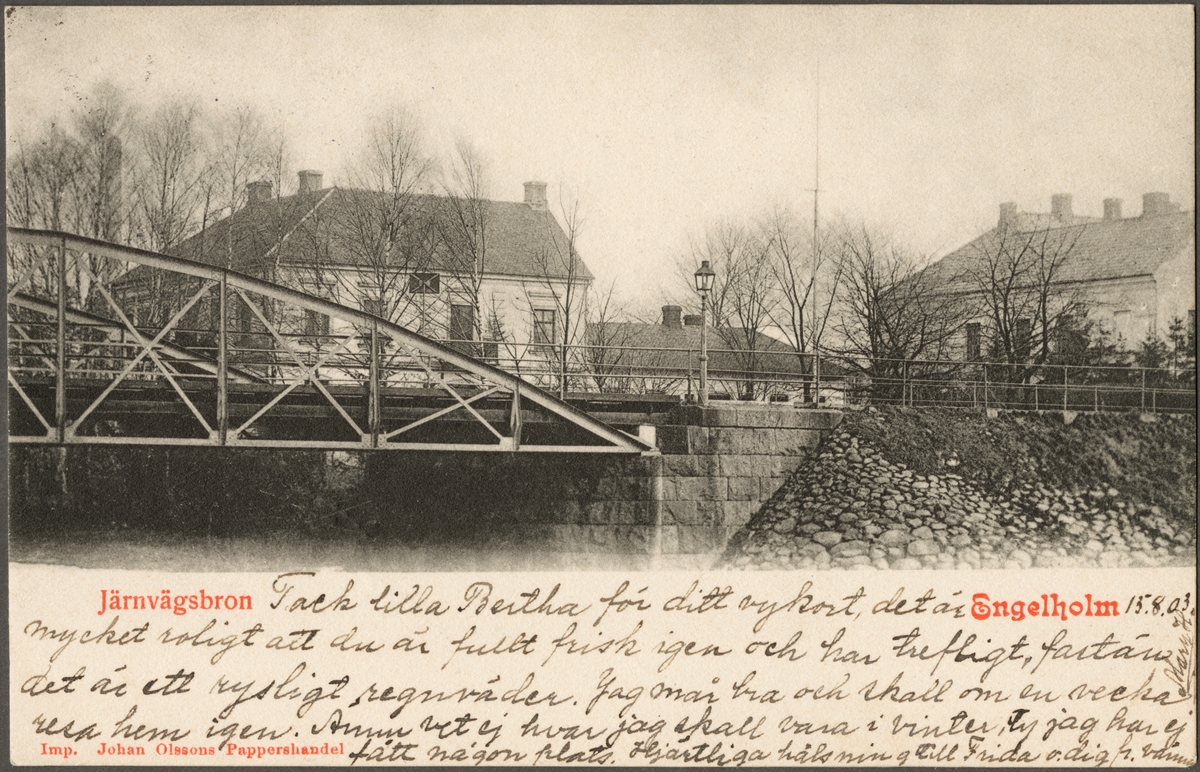 Järnvägsbron Tack lilla Bertha för ditt vykort, det är Engelholm 15.8.03.
mycket roligt att du är fullt frisk igen och har trefligt, fastän
det är ett rysligt regnväder. Jag mår bra och skall om en vecka
resa hem igen. Ännu vet ej hvar jag skall vara i vinter, ty jag har ej
Imp. Johan Olssons Pappershandel
fått någon plats. Hjärtliga hälsning till Frida o. dig fr. vännen